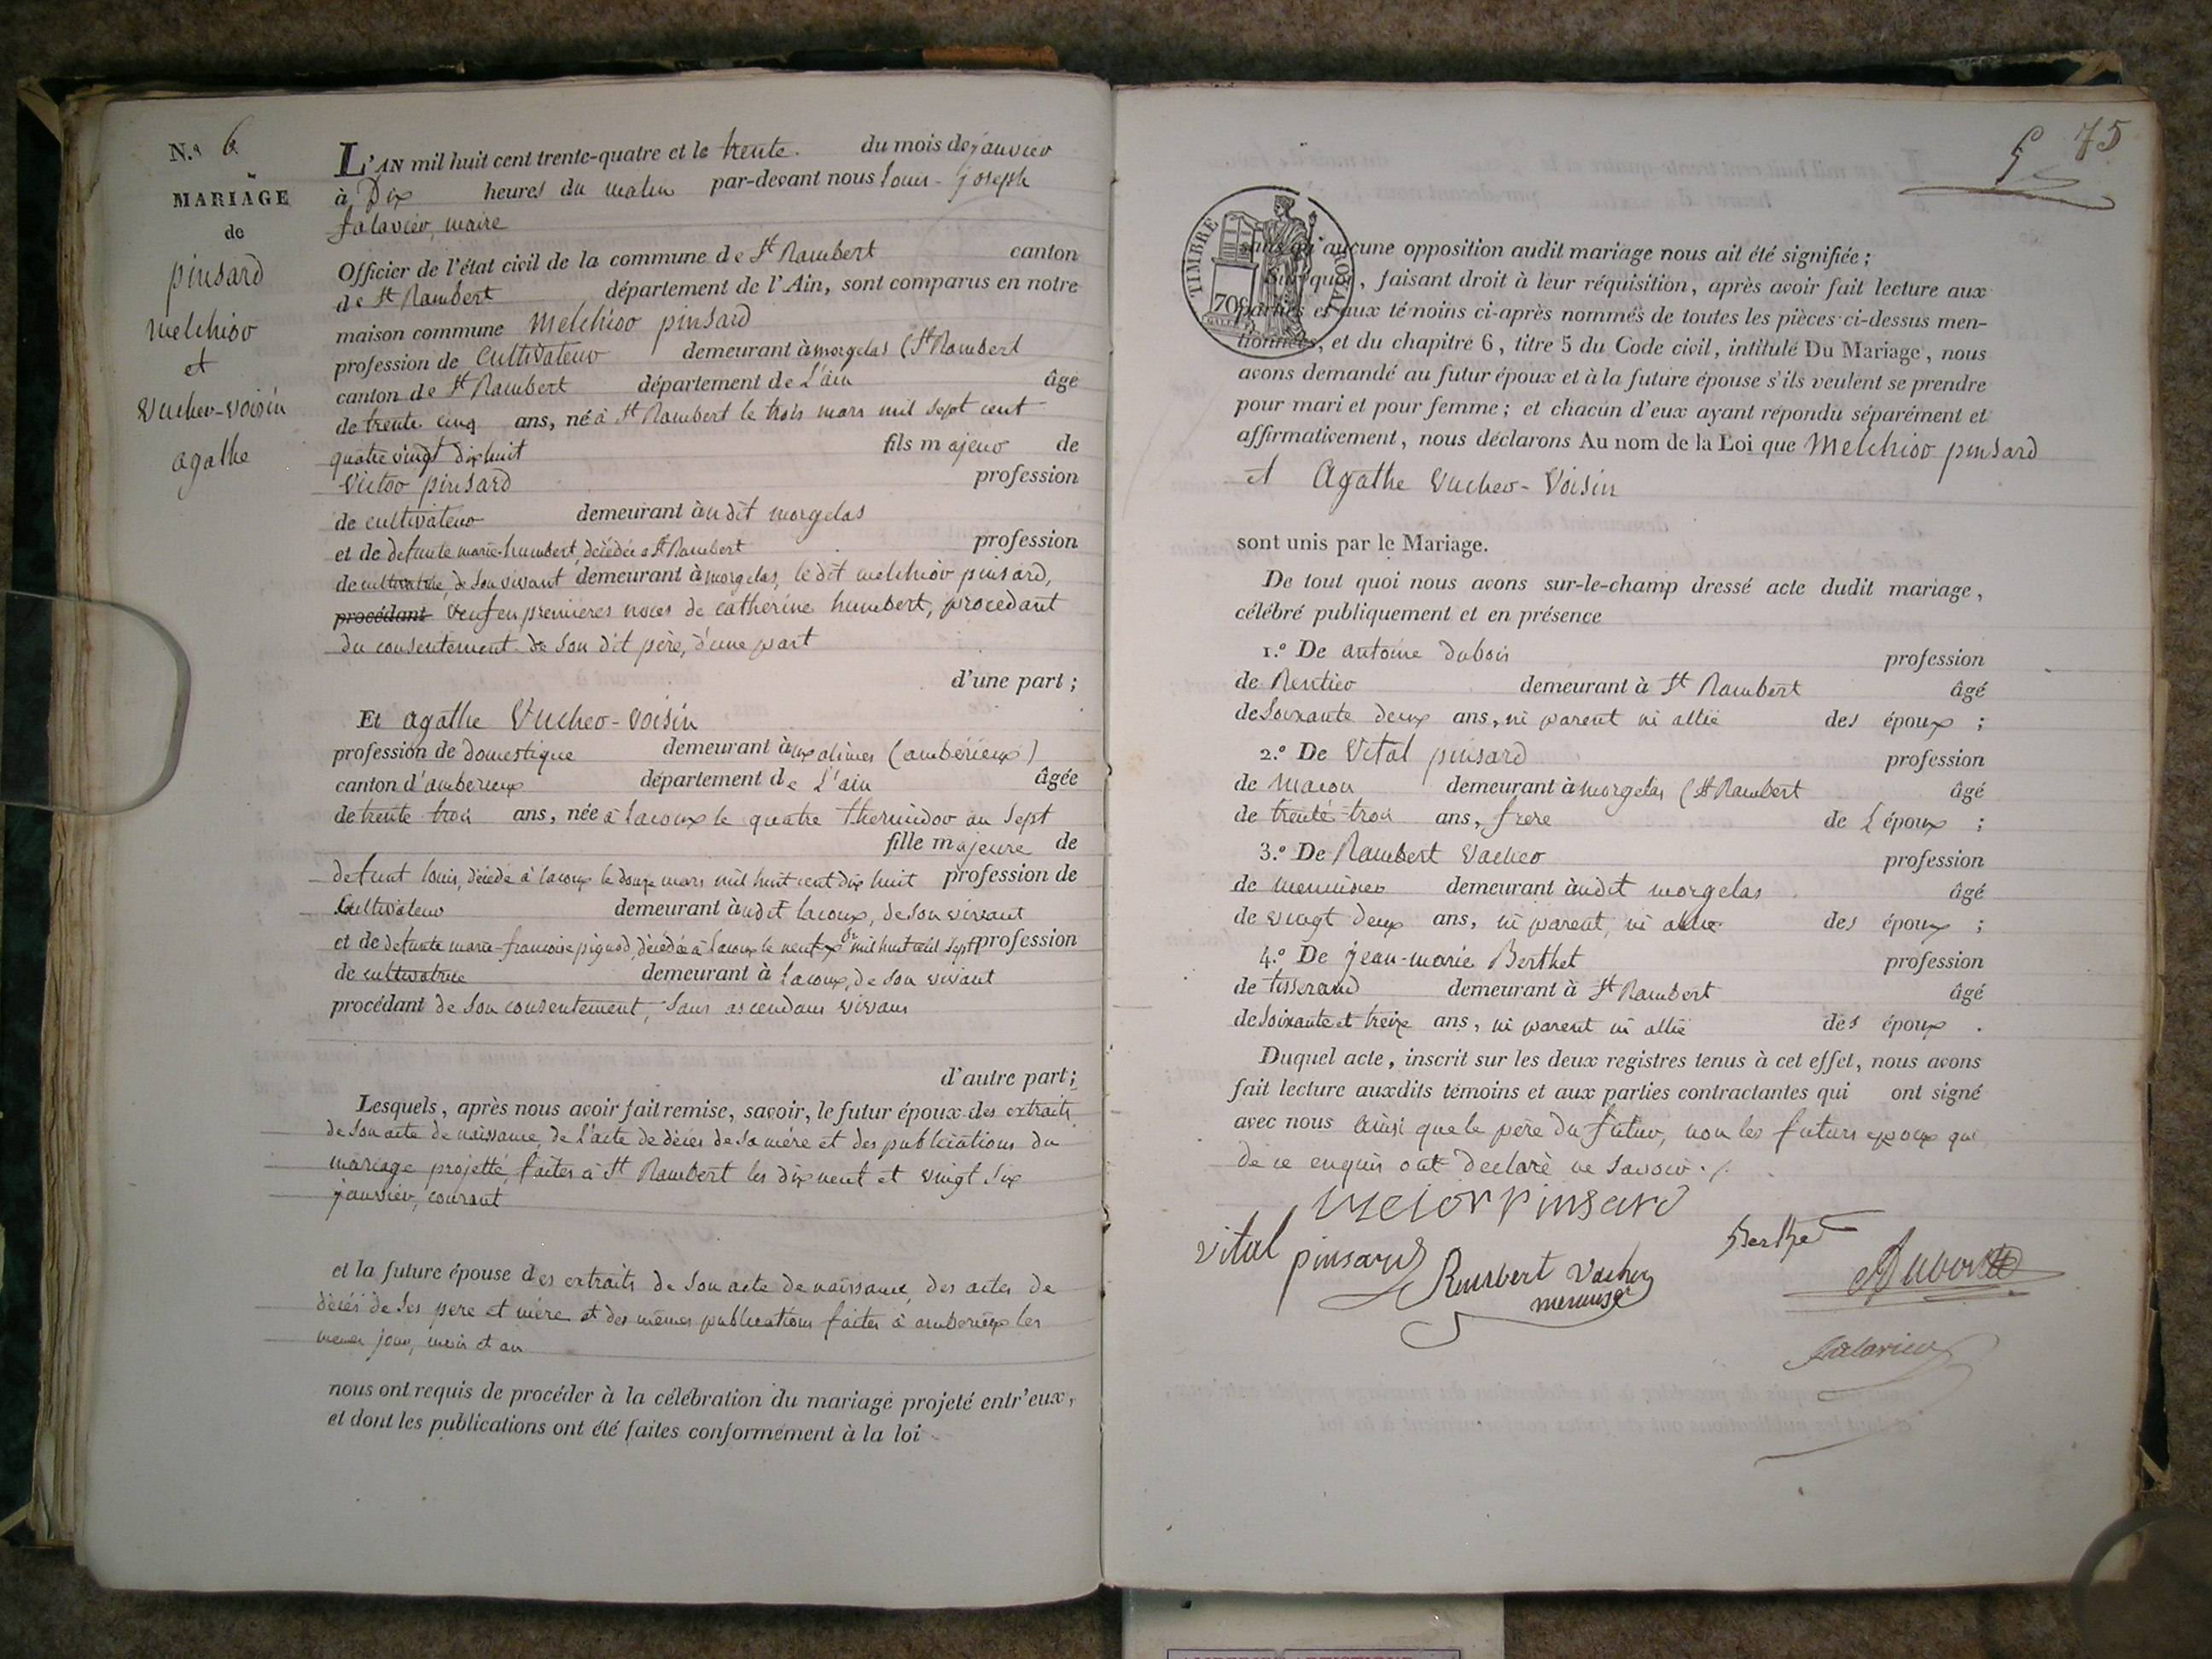 N.º 6
MARIAGE
de
pinsard
melchior
et
Vucher-voisin
agathe
L'AN mil huit cent trente-quatre et le trente. du mois de janvier
à Dix heures du matin par-devant nous Louis-Joseph
falavier, maire
Officier de l'état civil de la commune de St Rambert canton
de St Rambert département de l'Ain, sont comparus en notre
maison commune Melchior pinsard
profession de Cultivateur demeurant à morgelas (St Rambert
canton de St Rambert département de L'ain âgé
de trente cinq ans, né à St Rambert le trois mars mil sept cent
quatre vingt dix huit fils majeur de
Victor pinsard profession
de cultivateur demeurant àudit morgelas
et de defunte marie humbert, décédée a St Rambert profession
de cultivatrice, de son vivant demeurant à morgelas, le dit melchior pinsard,
procédant veuf en premieres noces de catherine humbert, procedant
du consentement de son dit père, d'une part
d'une part ;
Et agathe Vucher-voisin
profession de domestique demeurant àux alimes (ambérieux)
canton d'amberieux département de L'ain âgée
de trente trois ans, née à lacoux le quatre thermidor an sept
fille majeure de
defunt louis, décédé à lacoux le douze mars mil huit cent dix huit profession de
Cultivateur demeurant àudit lacoux, de son vivant
et de defunte marie-francoise pignod, décédée à lacoux le neuf Xbre mil huit cent sept profession
de cultivatrice demeurant à lacoux, de son vivant
procédant de son consentement, sans ascendans vivans
d'autre part;
Lesquels, après nous avoir fait remise, savoir, le futur époux des extraits
de son acte de naissance, de l'acte de décès de sa mère et des publications du
mariage projetté, faites à St Rambert les dix neuf et vingt six
janvier, courant
et la future épouse des extraits de son acte de naissance, des actes de
décès de ses pere et mère et des mêmes publications faites à amberieux les
memes jour, mois et an
nous ont requis de procéder à la célébration du mariage projeté entr'eux,
et dont les publications ont été faites conformément à la loi
75
TIMBRE ROYAL
70c
sans qu'aucune opposition audit mariage nous ait été signifiée ;
Sur quoi, faisant droit à leur réquisition, après avoir fait lecture aux
parties et aux témoins ci-après nommés de toutes les pièces ci-dessus men-
tionnées, et du chapitre 6, titre 5 du Code civil, intitulé Du Mariage, nous
avons demandé au futur époux et à la future épouse s'ils veulent se prendre
pour mari et pour femme ; et chacun d'eux ayant répondu séparément et
affirmativement, nous déclarons Au nom de la Loi que Melchior pinsard
et Agathe Vucher-Voisin
sont unis par le Mariage.
De tout quoi nous avons sur-le-champ dressé acte dudit mariage,
célébré publiquement et en présence
1.º De antoine Dubois profession
de Rentier demeurant à St Rambert âgé
de soixante deux ans, ni parent ni allié des époux ;
2.º De Vital pinsard profession
de macon demeurant à morgelas (St Rambert âgé
de trente-trois ans, frere de L'époux ;
3.º De Rambert Vacher profession
de menuisier demeurant àudit morgelas âgé
de vingt deux ans, ni parent, ni allié des époux ;
4.º De jean-marie Berthet profession
de tisserand demeurant à St Rambert âgé
de soixante et treize ans, ni parent ni allié des époux .
Duquel acte, inscrit sur les deux registres tenus à cet effet, nous avons
fait lecture auxdits témoins et aux parties contractantes qui ont signé
avec nous ainsi que le père du futur, non les futurs epoux qui
de ce enquis ont declaré ne savoir ./.
victor pinsard
vital pinsard
Berthet
Rambert Vacher
menuisier
Dubois
falavier